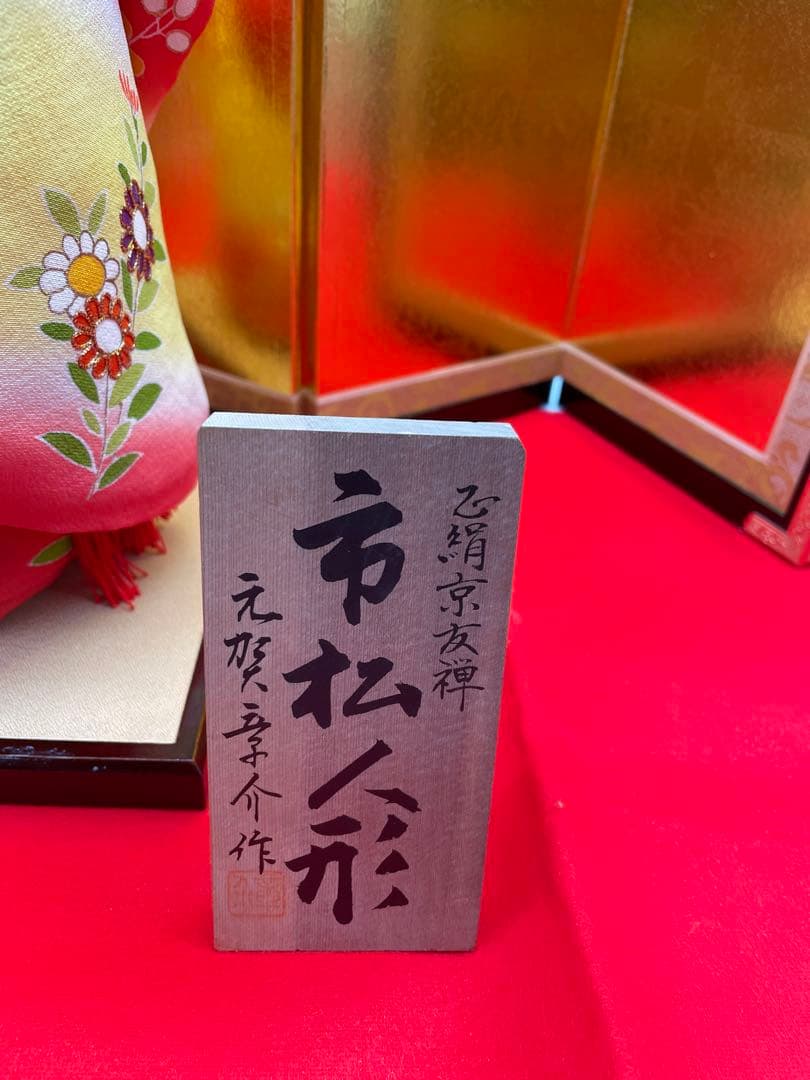 正絹京友禅
市松人形
元賀章介作